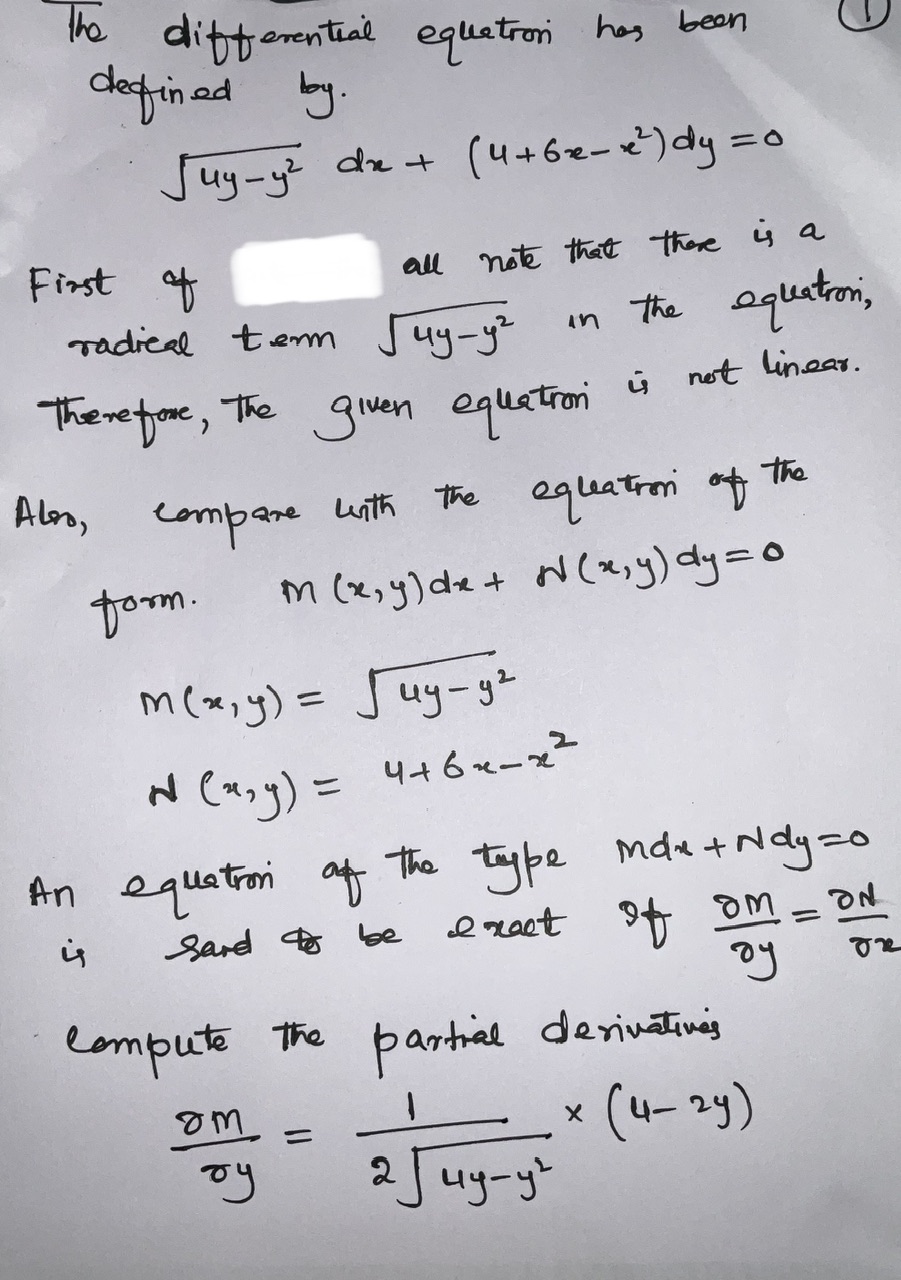 The differential equation has been
defined by.
√4y-y² dx + (4+6x-x²)dy=0
First of all note that there is a
radical term √4y-y² in the equation,
Therefore, The given equation is not linear.
Also, compare with the equation of the
form. M(x,y)dx + N(x,y)dy=0
M(x,y) = √4y-y²
N(x,y) = 4+6x-x²
An equation of the type Mdx+Ndy=0
is said to be exact If ∂M/∂y = ∂N/∂x
Compute the partial derivatives
∂M/∂y = 1/2√4y-y² × (4-2y)
①